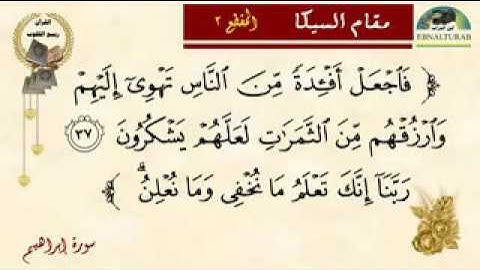 القرآن
ربيع القلوب
مقام السيكا
المقطع ٢
ابن التراب
EBNALTURAB
﴿ فَٱجۡعَلۡ أَفۡـِٔدَةٗ مِّنَ ٱلنَّاسِ تَهۡوِيٓ إِلَيۡهِمۡ
وَٱرۡزُقۡهُم مِّنَ ٱلثَّمَرَٰتِ لَعَلَّهُمۡ يَشۡكُرُونَ ٣٧
رَبَّنَآ إِنَّكَ تَعۡلَمُ مَا نُخۡفِي وَمَا نُعۡلِنُۗ ﴾
سورة إبراهيم